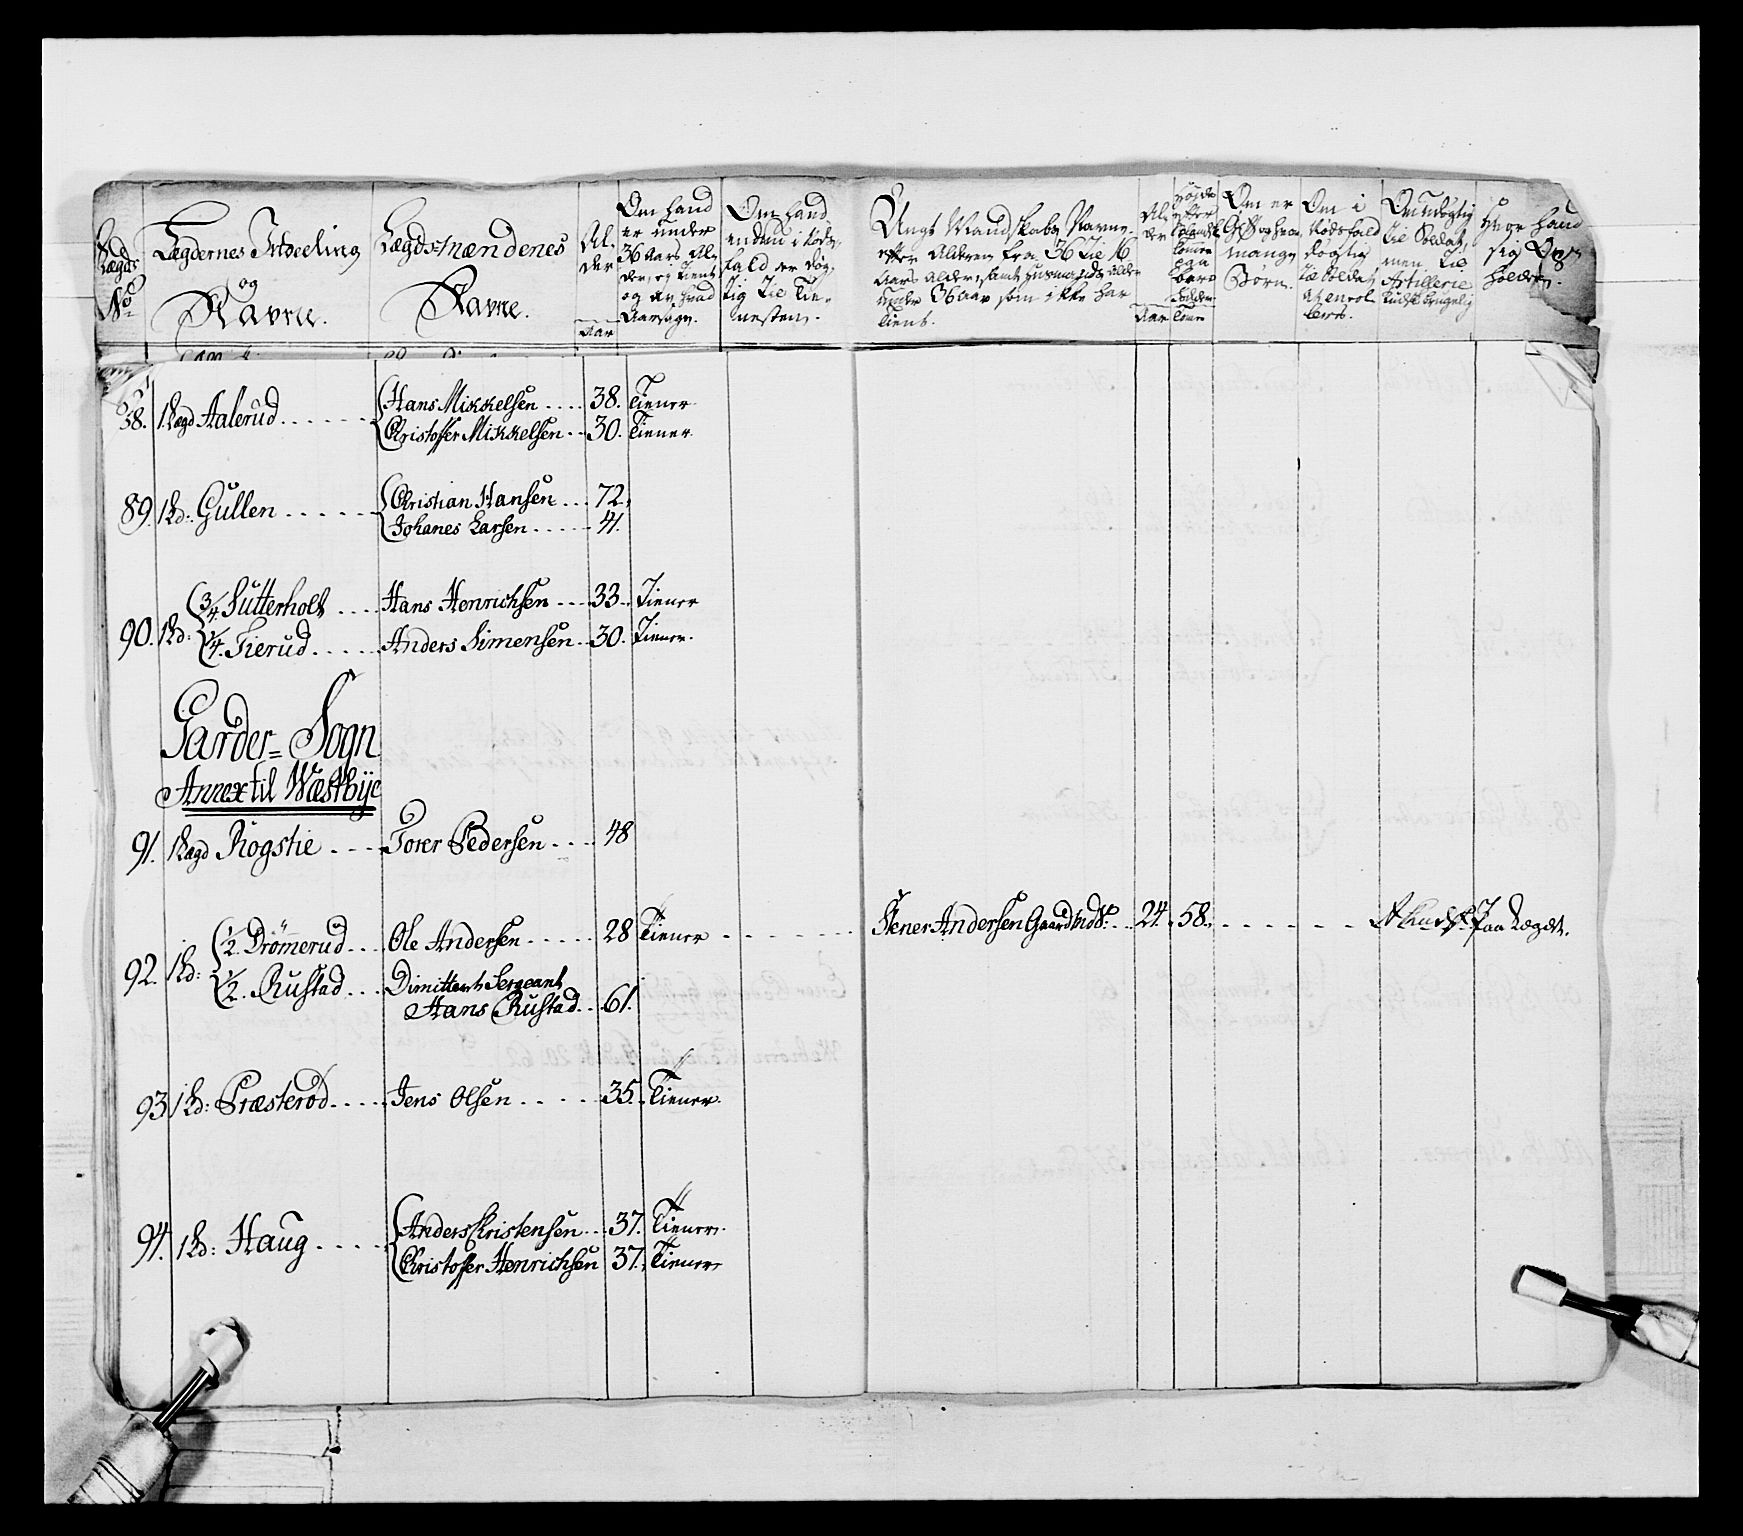 Lægds No
Lægdernes Indeeling og Navne.
Lægdsmændenes Navne.
Al-
der
Aar
Om hand
er under
36 Aars Al-
der, og tient
og
Aarsage.
Om hand
endnu i Nøds-
fald er døg-
tig til Tie-
nesten.
Ungt Mandskabs Navne
efter Alderen fra 36 til 16
Aars alder, samt Husmænds alder
under 36 aar som ikke har
tient.
Al-
der
Aar
Høyde
efter
paa
bare
Tomer
Om er
Gift og hvor
mange
Børn.
Om i
Nødsfald
døgtig
til Soldat
at enrol-
lere.
Om udøgtig
til Soldat,
men til
Artillerie
Hvor hand
sig Op-
holder.
88. 1 Lægd Aalerud . . . . . Hans Mikkelsen . . . . 38. Tiener
Christoffer Mikkelsen . . 30. Tiener.
89. 1 Ld: Gullen . . . . . Christian Hansen . . . 72.
Johanes Larsen . . . . . 41.
90. 1 Ld: 3/4 Sutterholt . . . . Hans Henrichsen . . . . 33. Tiener
1/4. Tierud . . . . . Anders Simensen . . 30. Tiener.
Garder= Sogn
Annex til Westbÿe
91. 1 Lægd Rogstie . . . . Torer Pedersen . . . . 48
92. 1 Ld: 1/2. Drömmerud . . . Ole Andersen . . . . . 28 Tiener . . . . . . . Stener Andersen Gaard . . . 24. 58. . . . . . . . . paa Lægdet.
1/2. Rustad . . . Dimitteret Sergeant
Hans Rustad . . 61.
93 1 Ld: Præsterød . . . . . Jens Olsen . . . . . 35. Tiener.
94. 1 Ld: Haug . . . . . Anders Christensen . . . 37. Tiener.
Christoffer Henrichsen 37. Tiener